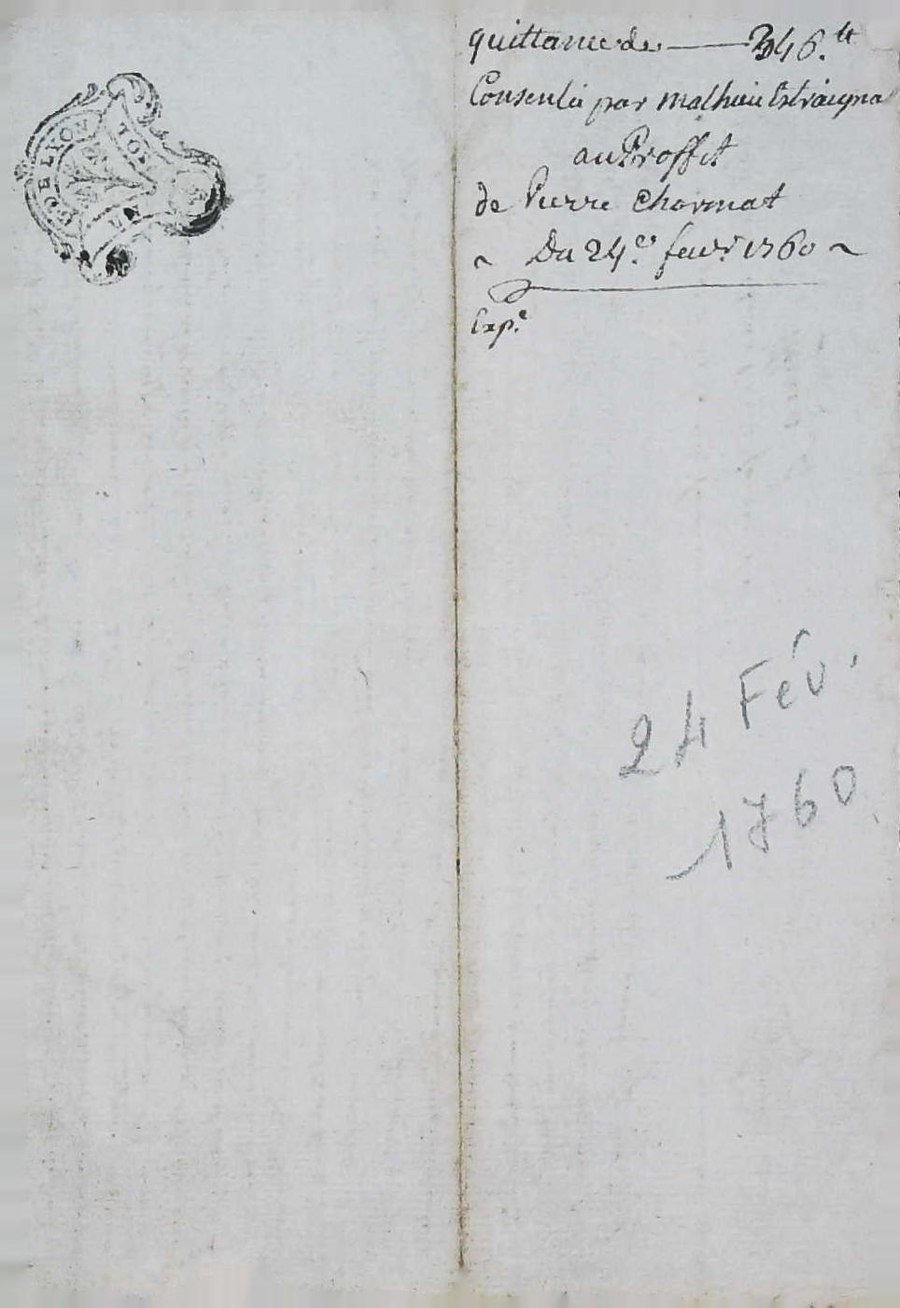 DE LYON
quittance de 346.tt
Consentie par mathieu Estraigna
au Proffit
de Pierre Chormat
~ Du 24.e fevr. 1760 ~
Exp.e
24 Fév.
1760